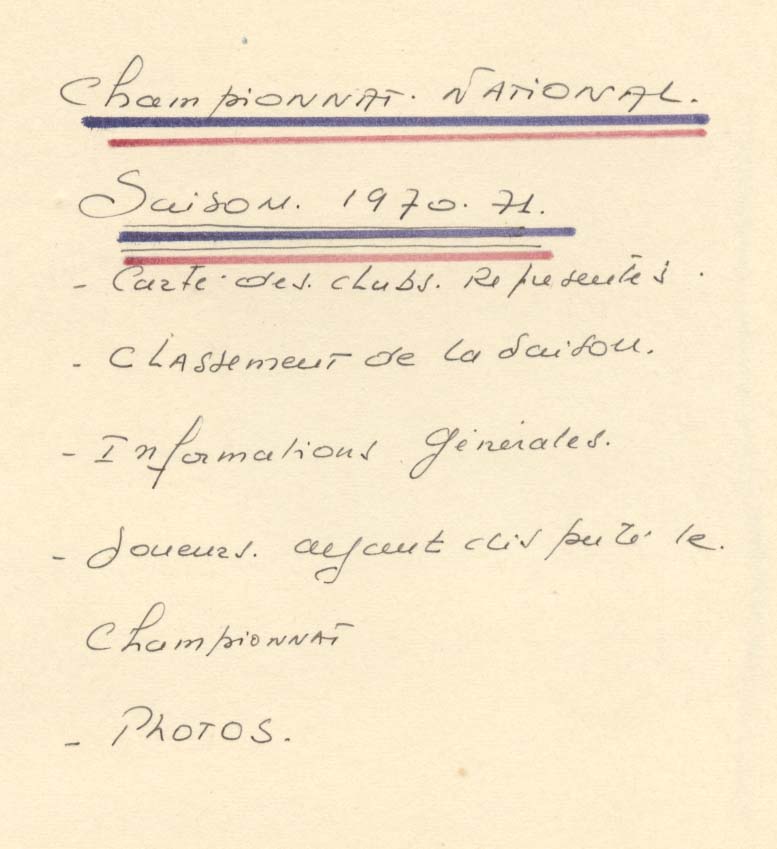 Championnat. National.
Saison. 1970. 71.
- Carte des. clubs. Représentés.
- Classement de la Saison.
- Informations Générales.
- Joueurs. ayant disputé le.
Championnat
- Photos.